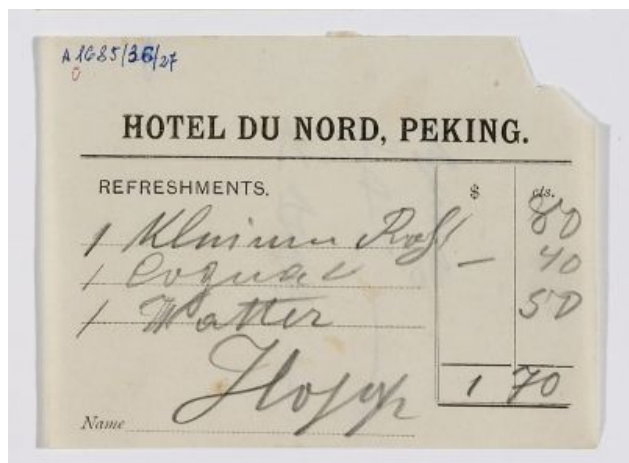 A 1685/36/27
0
HOTEL DU NORD, PEKING.
REFRESHMENTS. $ cts.
1 80
1 Cognac — 40
1 Watter 50
Hopp
1 70
Name